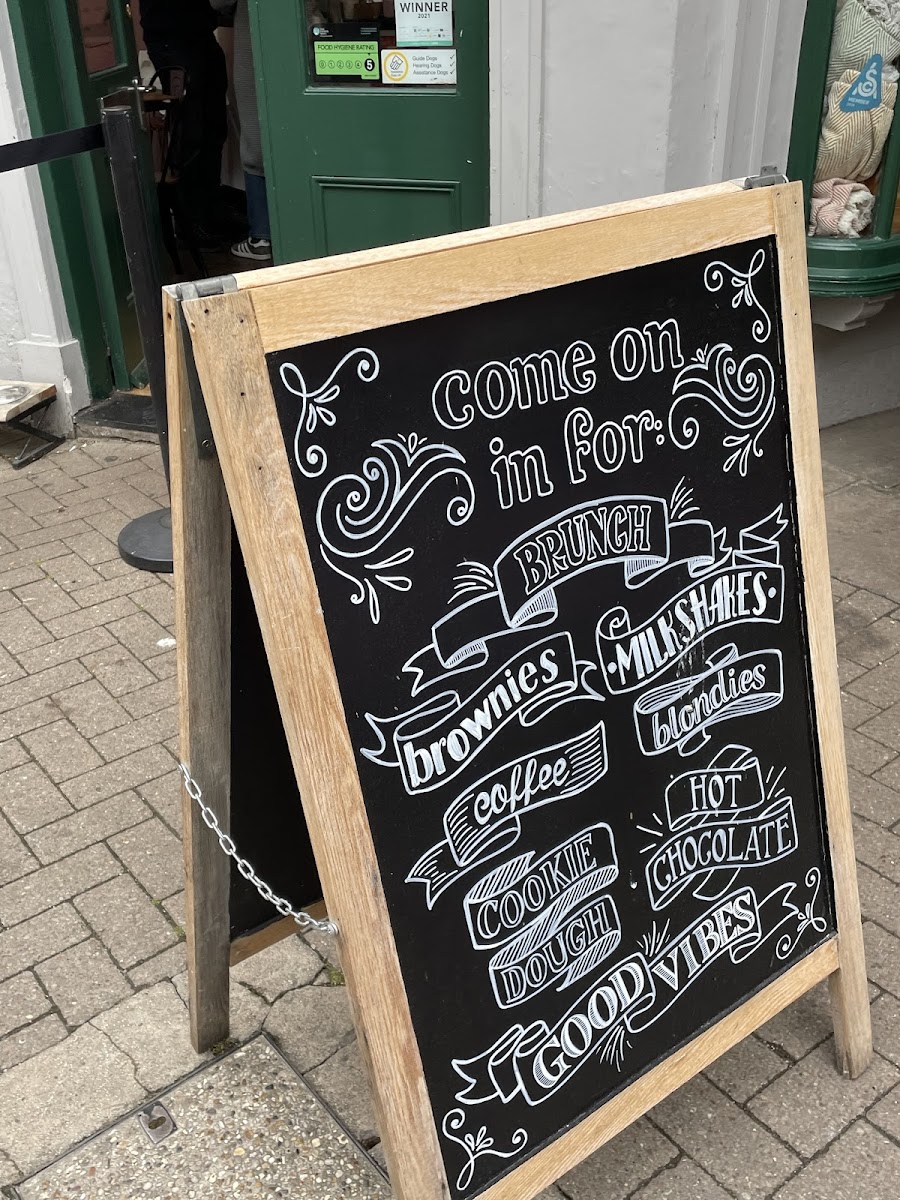 WINNER
2021
FOOD HYGIENE RATING
0 1 2 3 4 5
Guide Dogs ✓
Hearing Dogs ✓
Assistance Dogs ✓
MEMBER
come on
in for:
BRUNCH
·MILKSHAKES·
brownies
blondies
coffee
HOT
CHOCOLATE
COOKIE
DOUGH
GOOD VIBES